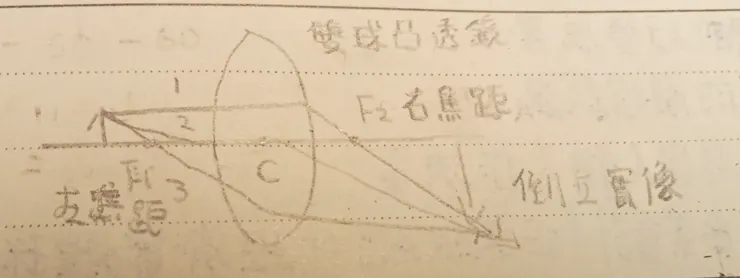 雙球凸透鏡
1
2
F2右焦距
F1
左焦距
3
C
倒立實像